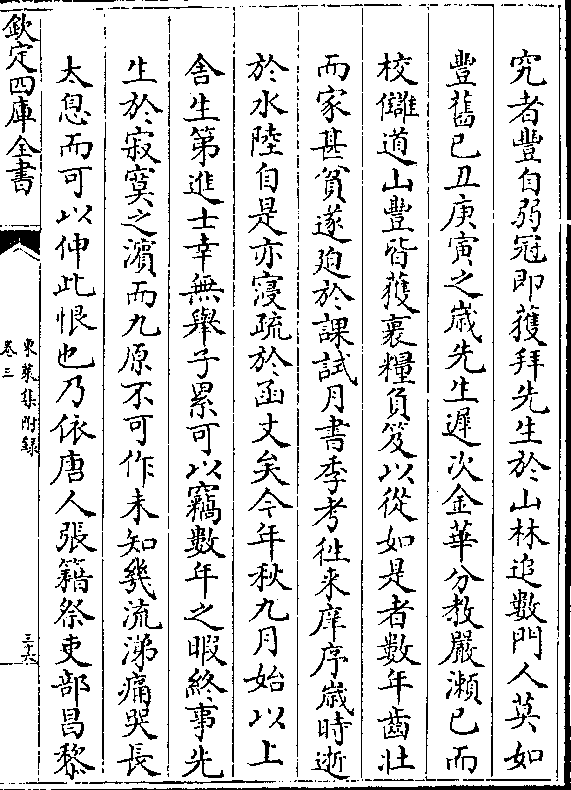 究者豐自弱冠即獲拜先生於山林追數門人莫如
豐舊己丑庚寅之歲先生遲次金華分教嚴瀨已而
校讎道山豐皆獲裹糧負笈以從如是者數年齒壯
而家甚貧遂廹於課試月書季考徃来庠序歲時逝
於水陸自是亦寖疏於函丈矣今年秋九月始以上
舍生第進士幸無舉子累可以竊數年之暇終事先
生於寂寞之濵而九原不可作未知幾流涕痛哭長
太息而可以伸此恨也乃依唐人張籍祭吏部昌黎
欽定四庫全書
東萊集附録
卷三
三六